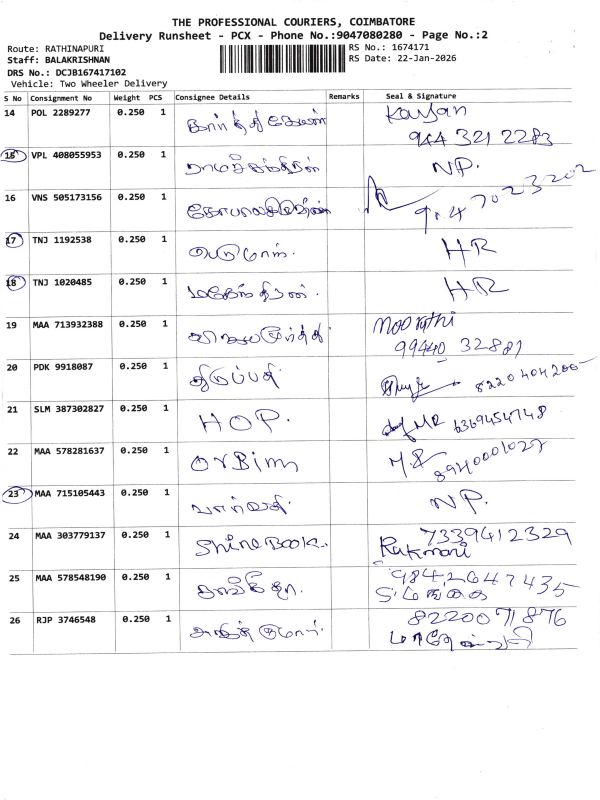 THE PROFESSIONAL COURIERS, COIMBATORE
Delivery Runsheet - PCX - Phone No.:9047080280 - Page No.:2
Route: RATHINAPURI
RS No.: 1674171
Staff: BALAKRISHNAN
RS Date: 22-Jan-2026
DRS No.: DCJB167417102
Vehicle: Two Wheeler Delivery
S No Consignment No Weight PCS Consignee Details Remarks Seal & Signature
14 POL 2289277 0.250 1 Kalyan
944 321 2283
15 VPL 408055953 0.250 1 NP.
16 VNS 505173156 0.250 1
17 TNJ 1192538 0.250 1 பெருமாள். HR
18 TNJ 1020485 0.250 1 மகேந்திரன். HR
19 MAA 713932388 0.250 1 Moorthi
99440 32881
20 PDK 9918087 0.250 1 திருப்பதி
21 SLM 387302827 0.250 1 HOP. 6369454748
22 MAA 578281637 0.250 1 Orbim 8940001027
23 MAA 715105443 0.250 1 பார்வதி. NP.
24 MAA 303779137 0.250 1 Shine Book. 7339412329
Rukmani
25 MAA 578548190 0.250 1 9842647435
26 RJP 3746548 0.250 1 8220071876